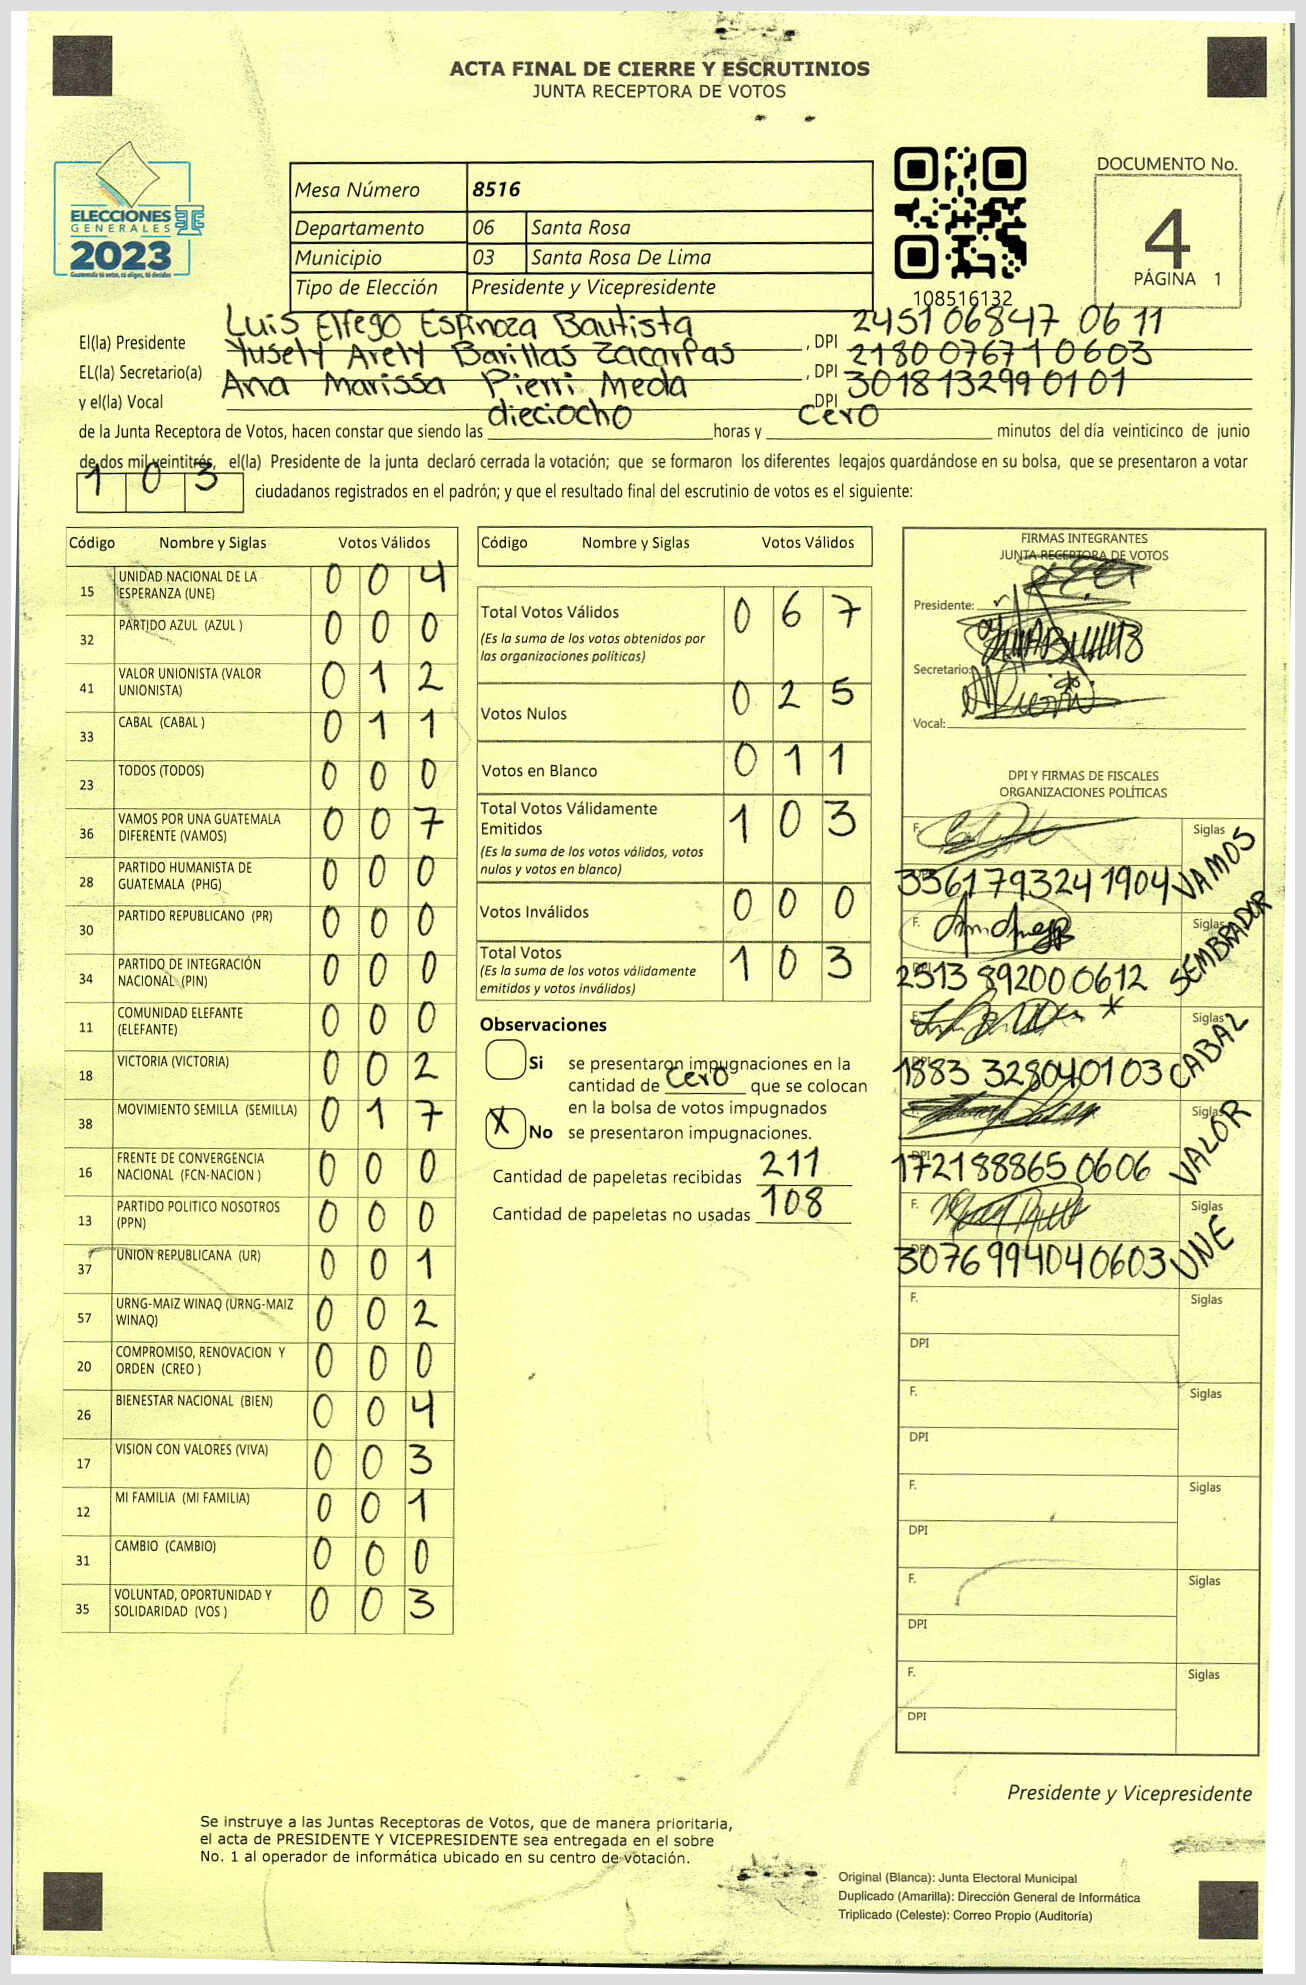 ACTA FINAL DE CIERRE Y ESCRUTINIOS
JUNTA RECEPTORA DE VOTOS
ELECCIONES
GENERALES
2023
Guatemala tú votas, tú eliges, tú decides
Mesa Número 8516
Departamento 06 Santa Rosa
Municipio 03 Santa Rosa De Lima
Tipo de Elección Presidente y Vicepresidente
108516132
DOCUMENTO No.
4
PÁGINA 1
El(la) Presidente Luis Elfego Espinoza Bautista, DPI 2451 06847 0611
EL(la) Secretario(a) Yusely Arely Barillas Zacarías, DPI 2180 07671 0603
y el(la) Vocal Ana Marissa Pierri Meda DPI 3018 13299 0101
de la Junta Receptora de Votos, hacen constar que siendo las dieciocho horas y cero minutos del día veinticinco de junio
de dos mil veintitrés, el(la) Presidente de la junta declaró cerrada la votación; que se formaron los diferentes legajos quardándose en su bolsa, que se presentaron a votar
103 ciudadanos registrados en el padrón; y que el resultado final del escrutinio de votos es el siguiente:
Código Nombre y Siglas Votos Válidos
15 UNIDAD NACIONAL DE LA ESPERANZA (UNE) 0 0 4
32 PARTIDO AZUL (AZUL ) 0 0 0
41 VALOR UNIONISTA (VALOR UNIONISTA) 0 1 2
33 CABAL (CABAL ) 0 1 1
23 TODOS (TODOS) 0 0 0
36 VAMOS POR UNA GUATEMALA DIFERENTE (VAMOS) 0 0 7
28 PARTIDO HUMANISTA DE GUATEMALA (PHG) 0 0 0
30 PARTIDO REPUBLICANO (PR) 0 0 0
34 PARTIDO DE INTEGRACIÓN NACIONAL (PIN) 0 0 0
11 COMUNIDAD ELEFANTE (ELEFANTE) 0 0 0
18 VICTORIA (VICTORIA) 0 0 2
38 MOVIMIENTO SEMILLA (SEMILLA) 0 1 7
16 FRENTE DE CONVERGENCIA NACIONAL (FCN-NACION ) 0 0 0
13 PARTIDO POLITICO NOSOTROS (PPN) 0 0 0
37 UNION REPUBLICANA (UR) 0 0 1
57 URNG-MAIZ WINAQ (URNG-MAIZ WINAQ) 0 0 2
20 COMPROMISO, RENOVACION Y ORDEN (CREO ) 0 0 0
26 BIENESTAR NACIONAL (BIEN) 0 0 4
17 VISION CON VALORES (VIVA) 0 0 3
12 MI FAMILIA (MI FAMILIA) 0 0 1
31 CAMBIO (CAMBIO) 0 0 0
35 VOLUNTAD, OPORTUNIDAD Y SOLIDARIDAD (VOS ) 0 0 3
Código Nombre y Siglas Votos Válidos
Total Votos Válidos 0 6 7
(Es la suma de los votos obtenidos por
las organizaciones políticas)
Votos Nulos 0 2 5
Votos en Blanco 0 1 1
Total Votos Válidamente
Emitidos 1 0 3
(Es la suma de los votos válidos, votos
nulos y votos en blanco)
Votos Inválidos 0 0 0
Total Votos 1 0 3
(Es la suma de los votos válidamente
emitidos y votos inválidos)
Observaciones
Si se presentaron impugnaciones en la
cantidad de cero que se colocan
en la bolsa de votos impugnados
X No se presentaron impugnaciones.
Cantidad de papeletas recibidas 211
Cantidad de papeletas no usadas 108
FIRMAS INTEGRANTES
JUNTA RECEPTORA DE VOTOS
Presidente:
Secretario:
Vocal:
DPI Y FIRMAS DE FISCALES
ORGANIZACIONES POLÍTICAS
F. Siglas VAMOS
DPI 3361 79324 1904
F. Siglas SEMBRADOR
DPI 2513 89200 0612
F. Siglas CABAL
DPI 1883 32804 0103
F. Siglas VALOR
DPI 1721 88865 0606
F. Siglas UNE
DPI 3076 99404 0603
F. Siglas
DPI
F. Siglas
DPI
F. Siglas
DPI
F. Siglas
DPI
F. Siglas
DPI
Presidente y Vicepresidente
Se instruye a las Juntas Receptoras de Votos, que de manera prioritaria,
el acta de PRESIDENTE Y VICEPRESIDENTE sea entregada en el sobre
No. 1 al operador de informática ubicado en su centro de votación.
Original (Blanca): Junta Electoral Municipal
Duplicado (Amarilla): Dirección General de Informática
Triplicado (Celeste): Correo Propio (Auditoría)